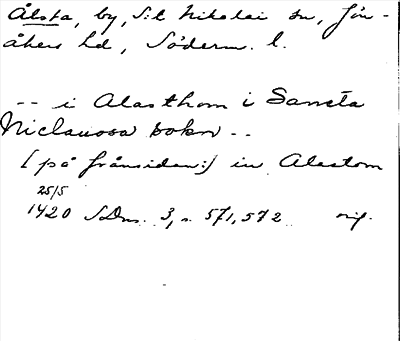 Ålsta, by, S:t Nikolai sn, Jön-
åkers hd, Söderm. l.
-- i Alasthom i Sancta
Niclauosa sokn --
[på frånsidan:] in Alastom
25/5
1420 SDns. 3, s. 571, 572 orig.